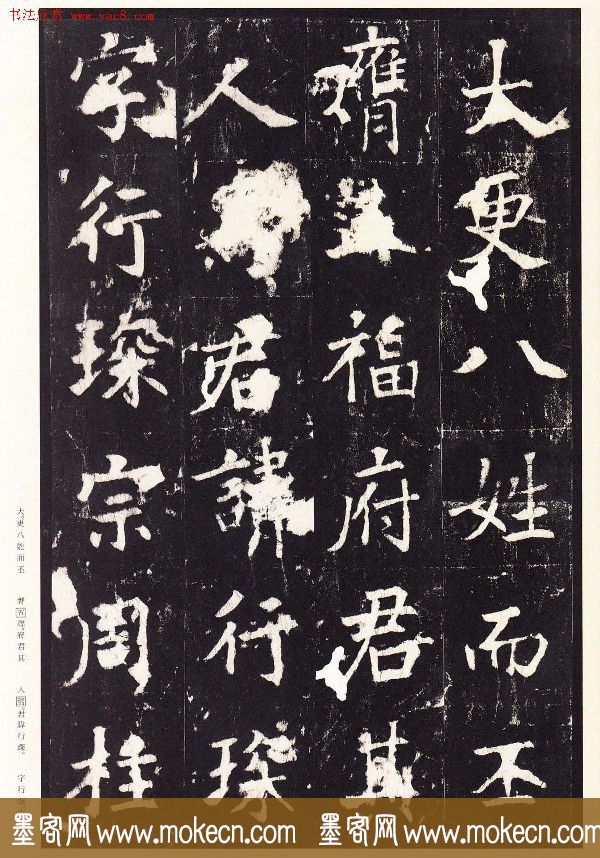 书法欣赏 www.yac8.com
大更八姓而丕
膺福府君其
人君諱行琛
字行琛宗周桂
大更八姓而丕 膺五福府君其 人君諱行琛 字行
墨客网 www.mokecn.com 墨客网 www.mokecn.com